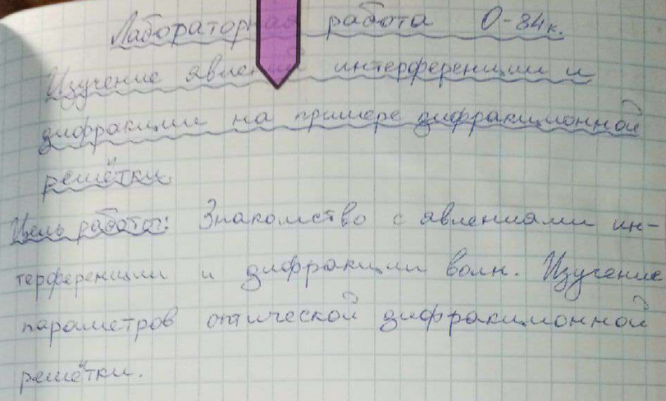 Лабораторная работа О-84к.
Изучение явлений интерференции и
дифракции на примере дифракционной
решётки
Цель работы: Знакомство с явлениями ин-
терференции и дифракции волн. Изучение
параметров оптической дифракционной
решётки.